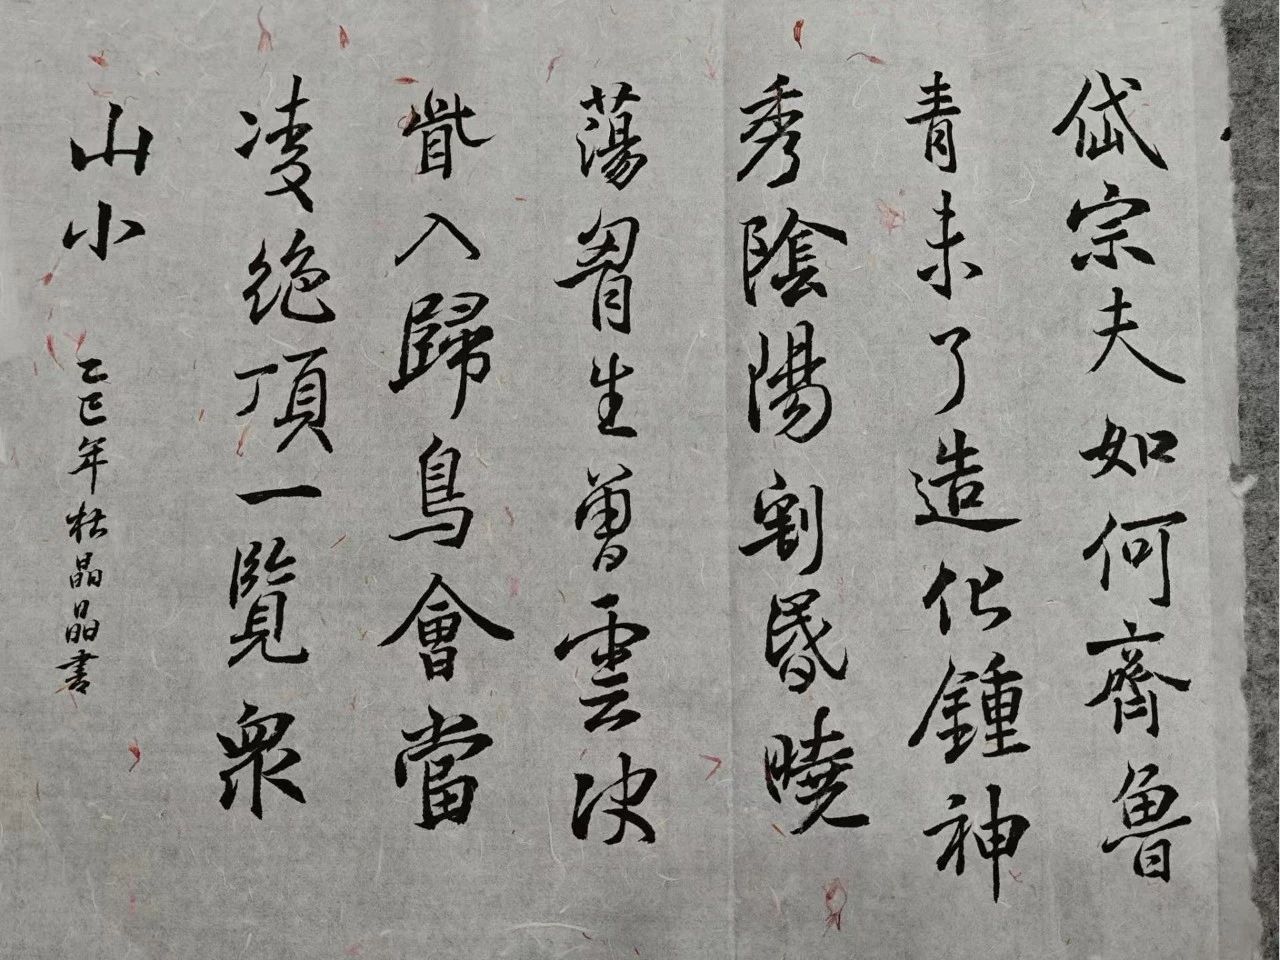 岱宗夫如何齊魯
青未了造化鍾神
秀陰陽割昏曉
蕩胷生曾雲決
眥入歸鳥會當
凌絕頂一覽衆
山小
乙巳年杜晶晶書